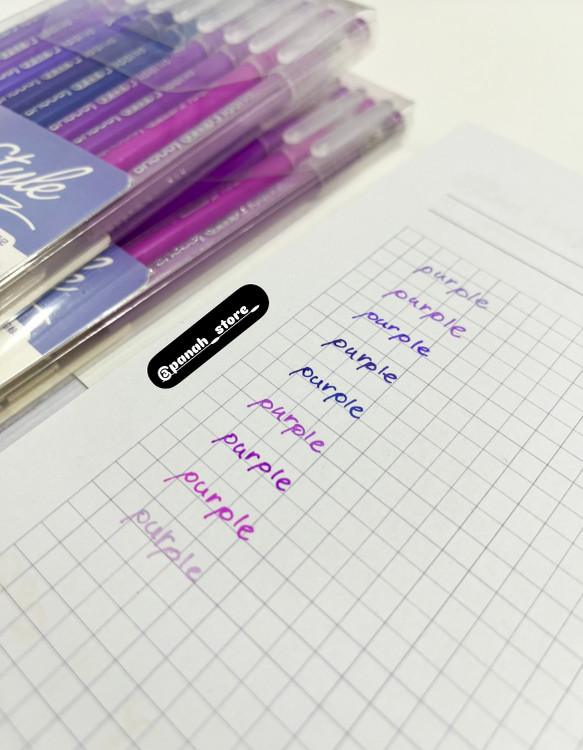 Style
@panah_store_
purple
purple
purple
purple
purple
purple
purple
purple
purple